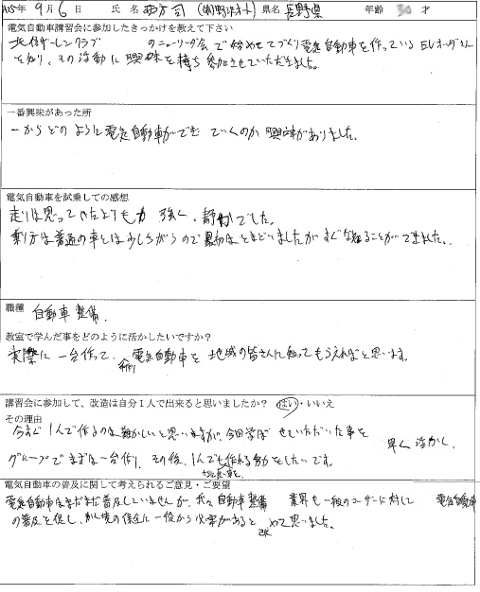 9月6日 氏名 県名 長野県 年齢 才
電気自動車講習会に参加したきっかけを教えて下さい
のニューリーダー会で始めて手づくり電気自動車を作っている
を知り、その活動に興味を持ち参加させていただきました。
一番興味があった所
一からどのように電気自動車ができていくのか興味がありました。
電気自動車を試乗しての感想
走りは思っていたよりも力強く、静かでした。
乗り方は普通の車とは少しちがうので最初はとまどいましたがすぐなれることができました。
職種 自動車整備
教室で学んだ事をどのように活かしたいですか?
実際に一台作って、電気自動車を地域の皆さんに知ってもらえればと思います。
講習会に参加して、改造は自分1人で出来ると思いましたか? はい・いいえ
その理由
今すぐ1人で作るのは難しいと思いますが、今回学ばせていただいた事を早く活かし
グループでまずは一台作り、その後、1人でも作れる
電気自動車の普及に関して考えられるご意見・ご要望
電気自動車はまだまだ普及していませんが、我々自動車整備業界も一般のユーザーに対して電気自動車
の普及を促し、